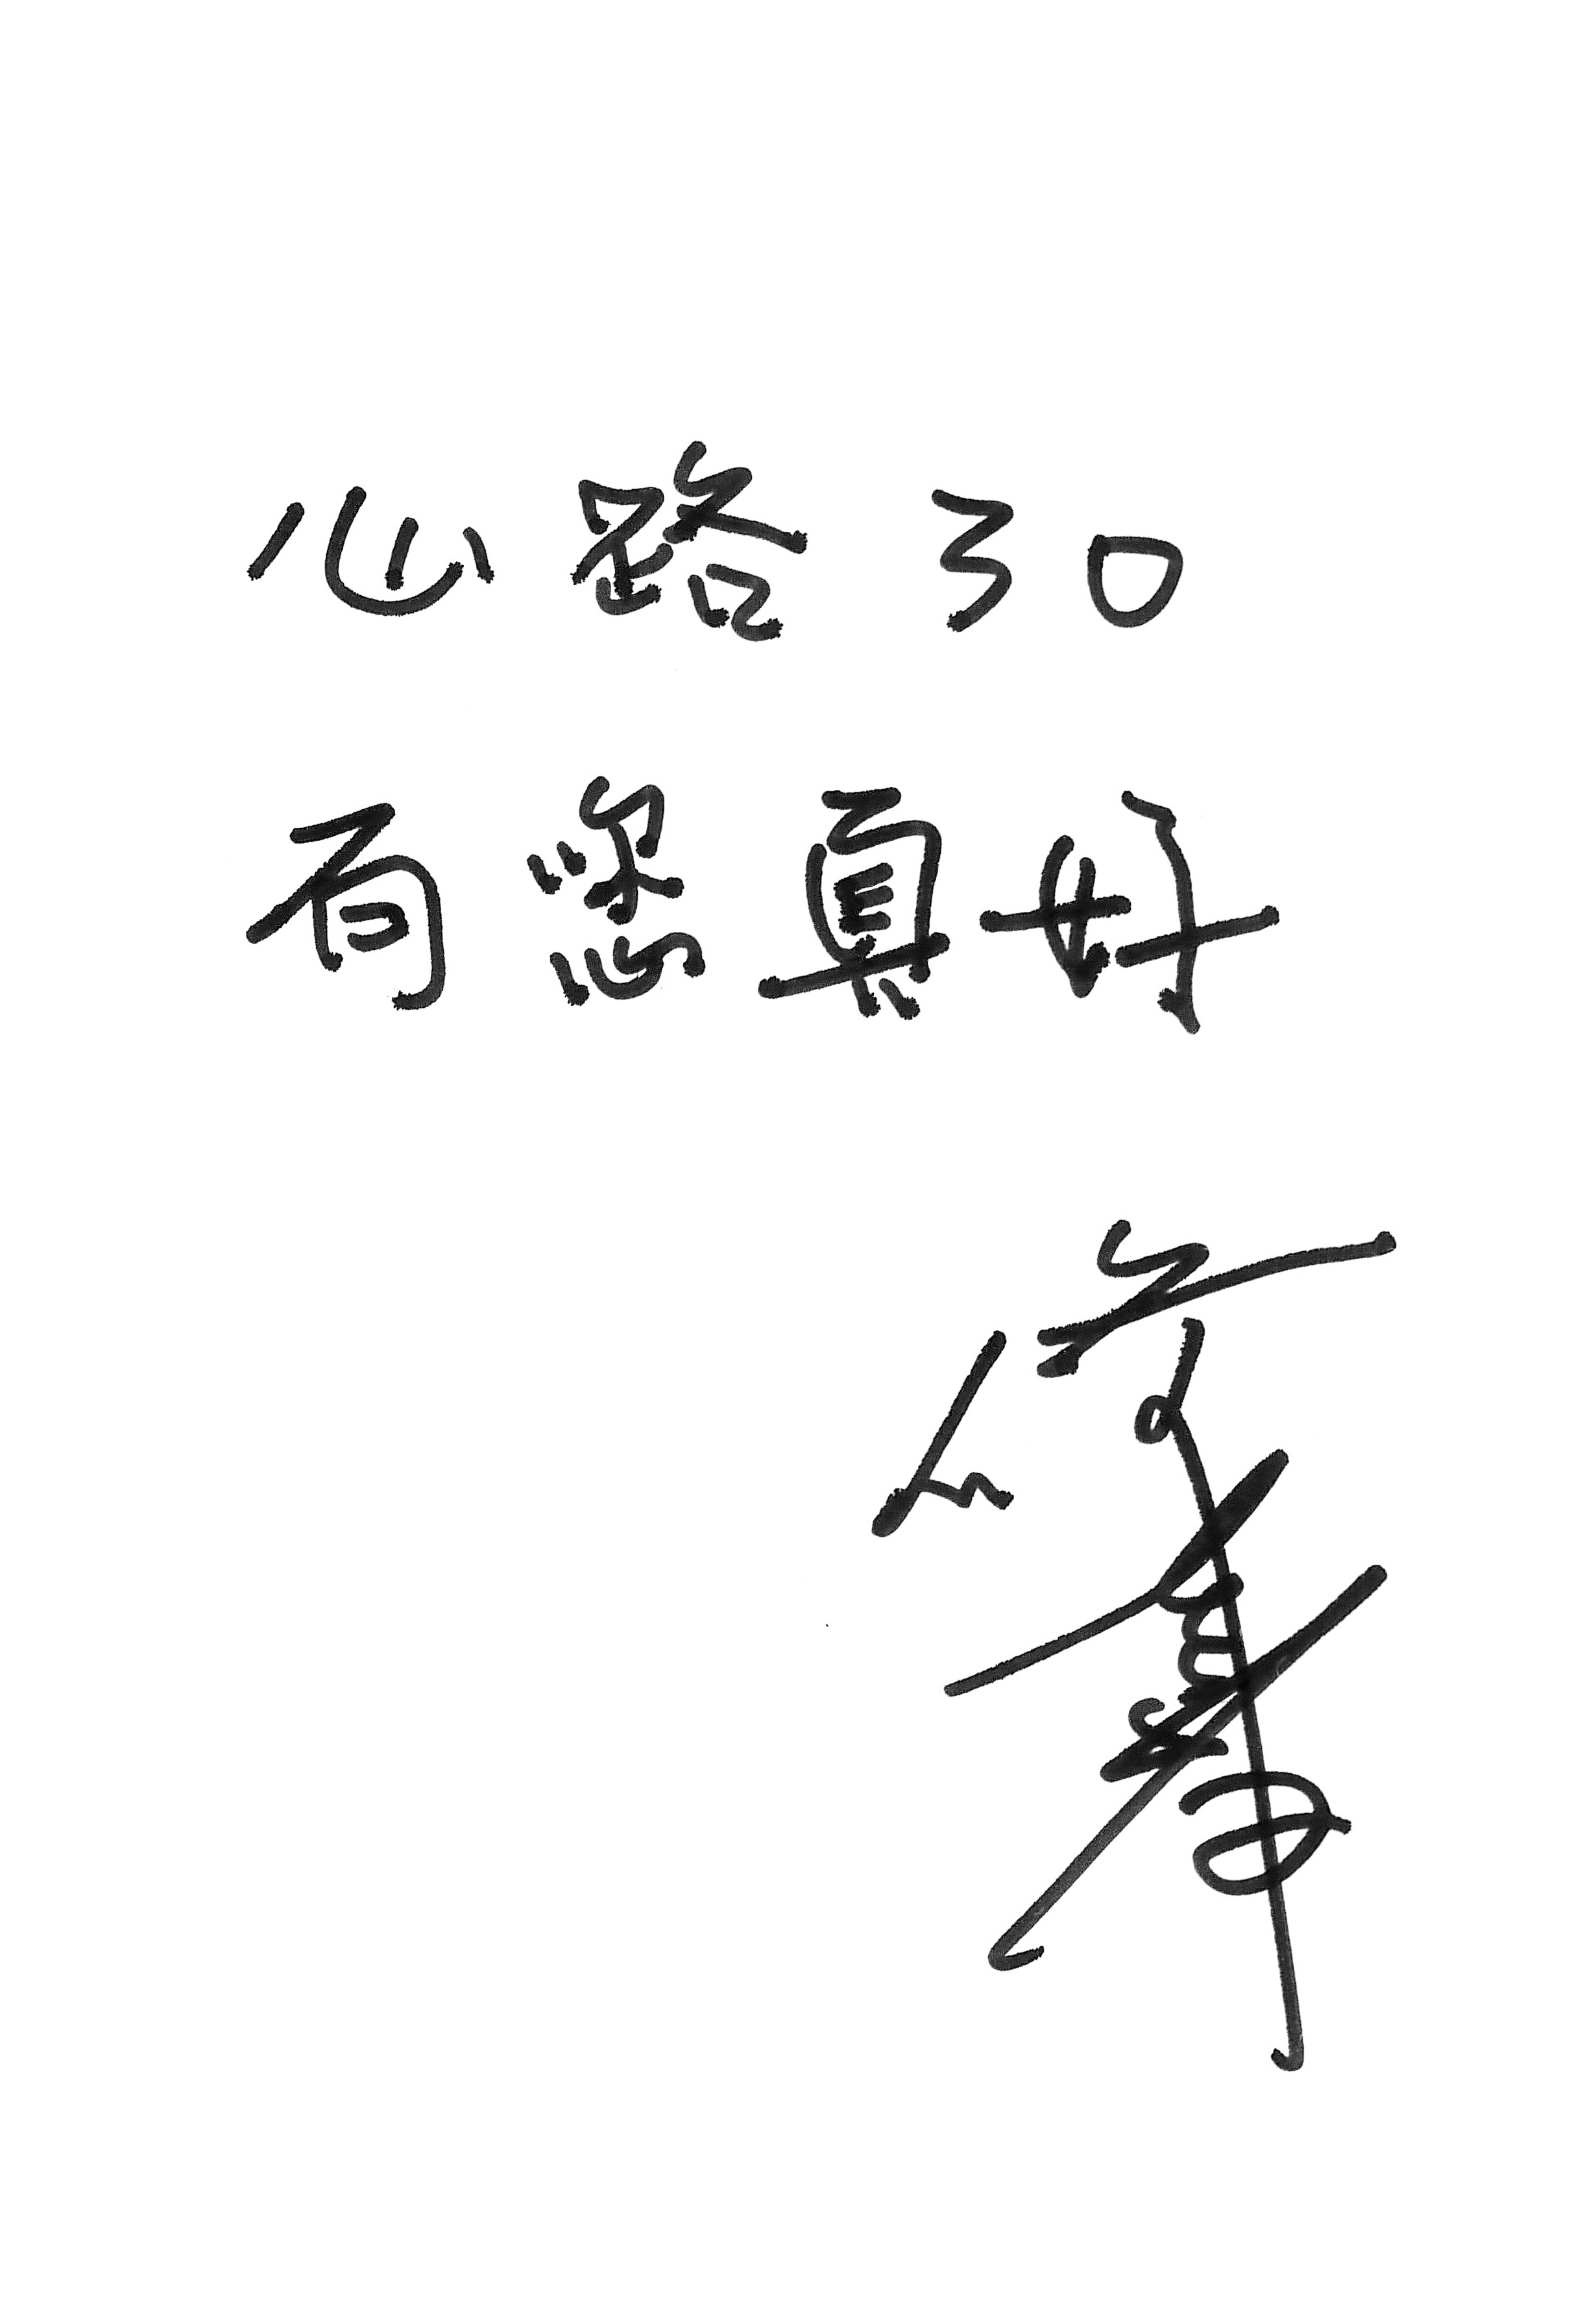 心路30
有您真好